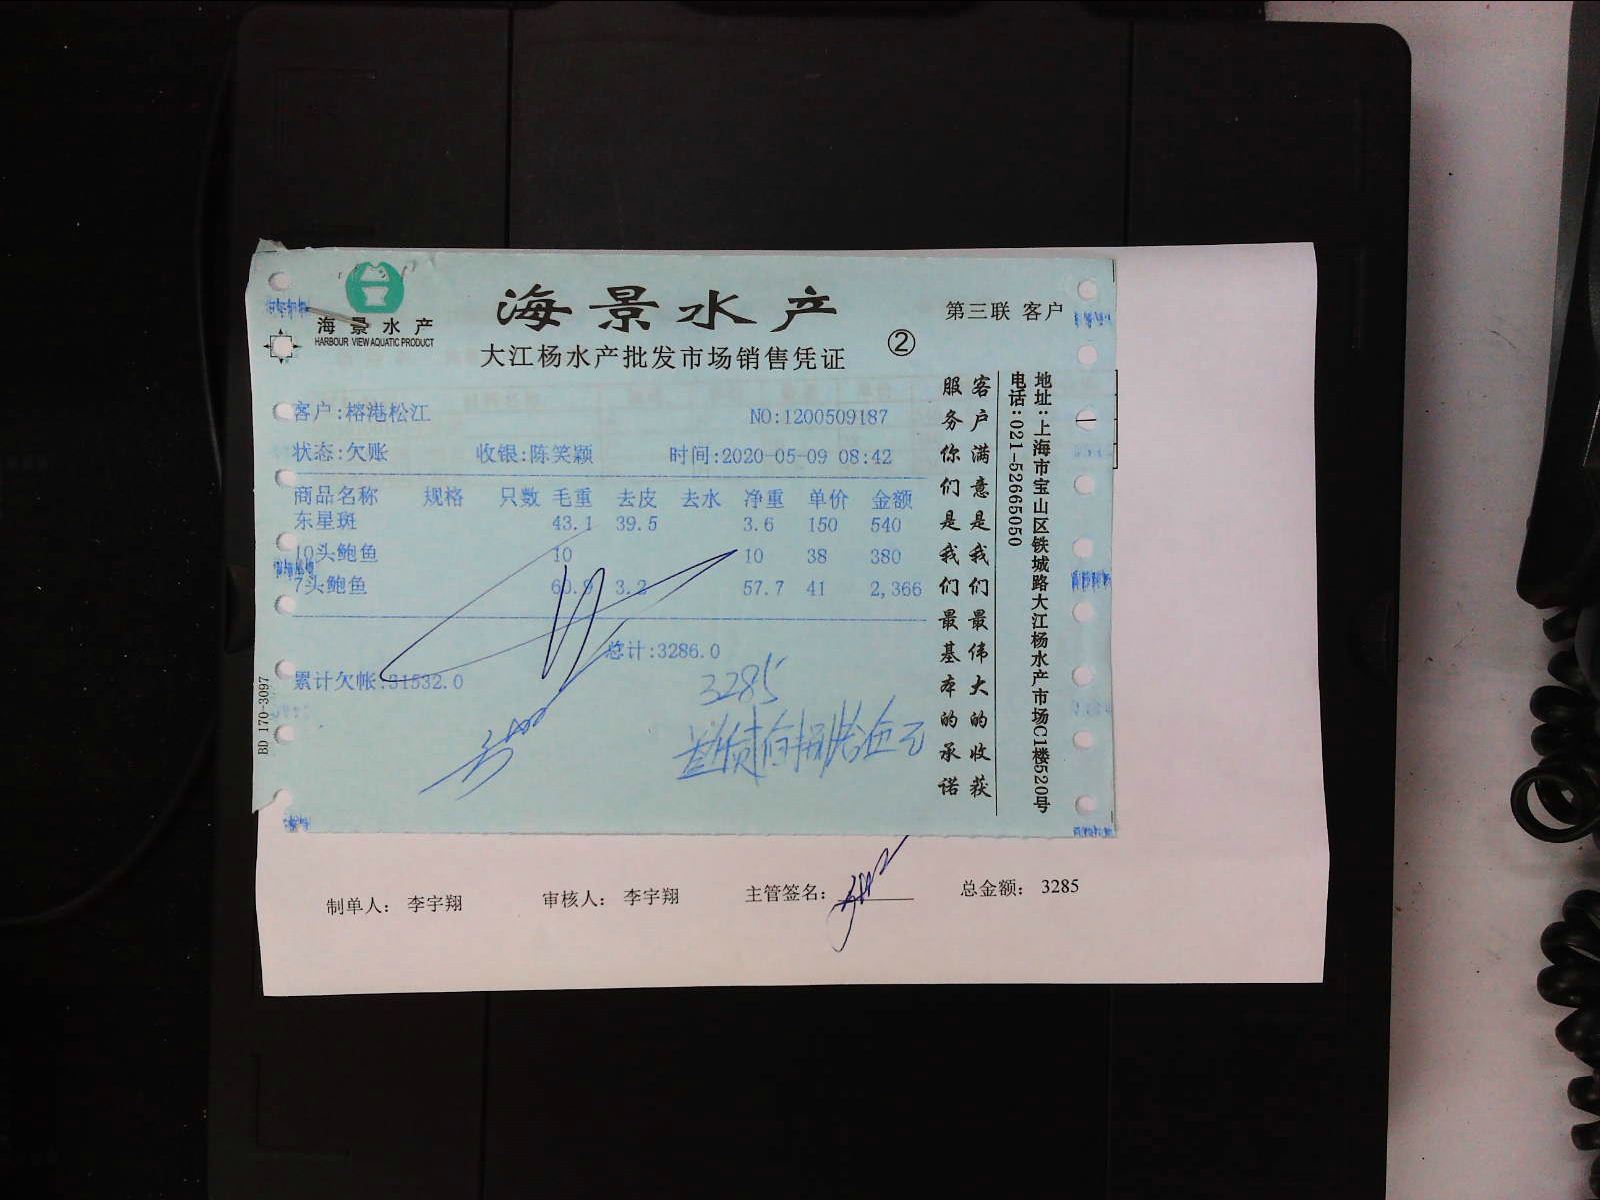 海景水产
HARBOUR VIEW AQUATIC PRODUCT
海景水产
大江杨水产批发市场销售凭证
②
第三联 客户
客户:榕港松江
NO:1200509187
状态:欠账 收银:陈笑颖 时间:2020-05-09 08:42
商品名称 规格 只数 毛重 去皮 去水 净重 单价 金额
东星斑 43.1 39.5 3.6 150 540
10头鲍鱼 10 10 38 380
7头鲍鱼 60.9 3.2 57.7 41 2,366
总计:3286.0
累计欠帐:31532.0
3285
BD 170-3097
客户满意是我们最伟大的收获
服务你们是我们最基本的承诺
地址:上海市宝山区铁城路大江杨水产市场C1楼520号
电话:021-52665050
制单人: 李宇翔 审核人: 李宇翔 主管签名: 总金额: 3285